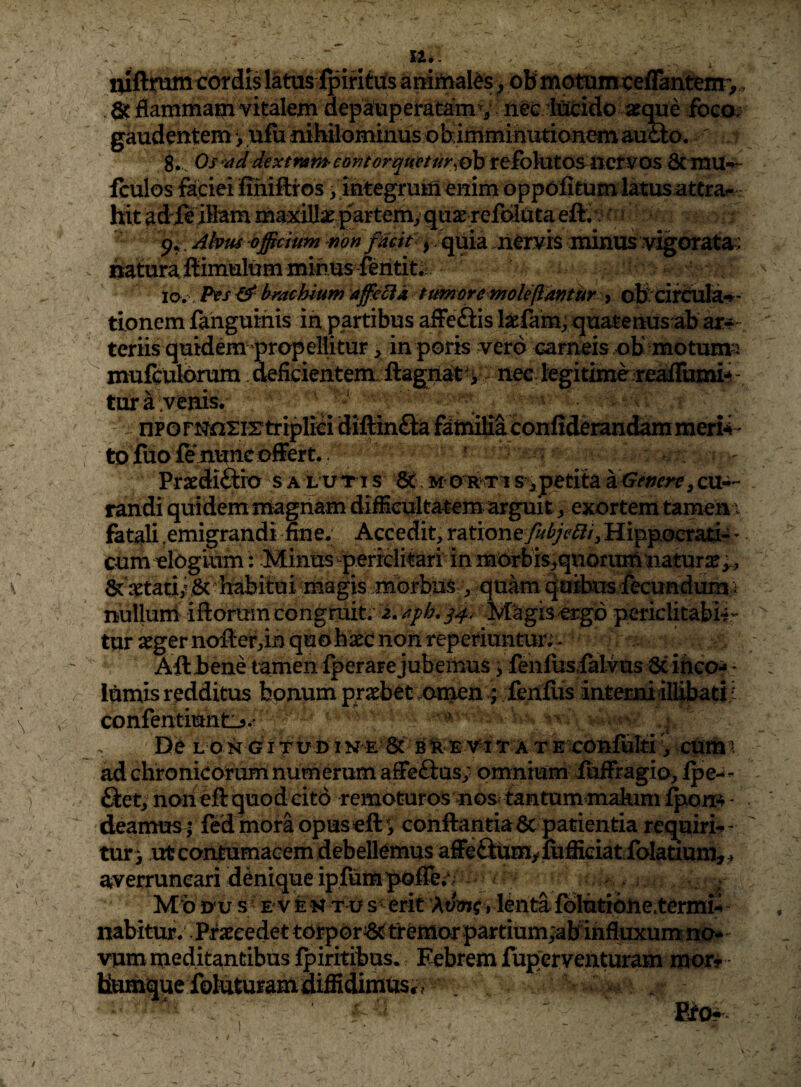 12.
niſtrum cordis latus ſpiritus animales, ob motum ceſſantem,
& flammam vitalem depauperatam, nec lucido æque foco
gaudentem, uſu nihilominus ob imminutionem aucto.
8. Os ad dextrum contorquetur, ob reſolutos nervos & mu-
ſculos faciei ſiniſtros, integrum enim oppoſitum latus attra-
hit ad ſe illam maxillæ partem, quæ reſoluta eſt.
9. Alvus officium non facit, quia nervis minus vigorata
natura ſtimulum minus ſentit.
10. Pes & brachium affecta tumore moleſtantur, ob circula-
tionem ſanguinis in partibus affectis læſam, quatenus ab ar-
teriis quidem propellitur, in poris vero carneis ob motum
muſculorum deficientem ſtagnat, nec legitime reaſſumi-
tur à venis.
ΠΡΟΓΝΩΣΙΣ triplici diſtincta familiâ conſiderandam meri-
to ſuo ſe nunc offert.
Prædictio SALUTIS & MORTIS, petita à Genere, cu-
randi quidem magnam difficultatem arguit, exortem tamen
fatali emigrandi fine. Accedit, ratione ſubjecti, Hippocrati-
cum elogium: Minus periclitari in morbis, quorum naturæ,
& ætati, & habitui magis morbus, quàm quibus ſecundum
nullum iſtorum congruit. 2. aph. 34. Magis ergò periclitabi-
tur æger noſter, in quo hæc non reperiuntur.
Aſt bene tamen ſperare jubemus, ſenſus ſalvus & inco-
lumis redditus bonum præbet omen; ſenſus interni illibati
conſentiunt.
De LONGITUDINE & BREVITATE conſulti, cum
ad chronicorum numerum affectus, omnium ſuffragio, ſpe-
ctet, non eſt quod citò remoturos nos tantum malum ſpon-
deamus; ſed morâ opus eſt, conſtantia & patientia requiri-
tur; ut contumacem debellemus affectum, ſufficiat ſolatium,
averruncari denique ipſum poſſe.
MODUS EVENTUS erit λύσις, lentâ ſolutione termi-
nabitur. Præcedet torpor & tremor partium, ab influxum no-
vum meditantibus ſpiritibus. Febrem ſuperventuram mor-
bumque ſoluturam diffidimus.
Pro-